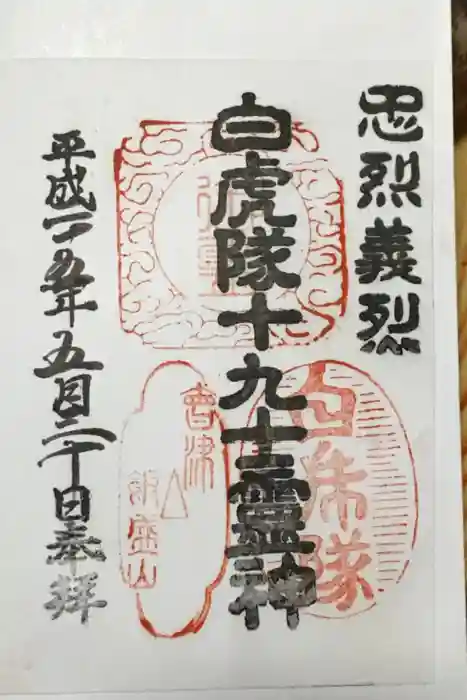 忠烈義烈
白虎隊十九士靈神
平成二五年五月二十日奉拝
白虎隊
會津
飯盛山